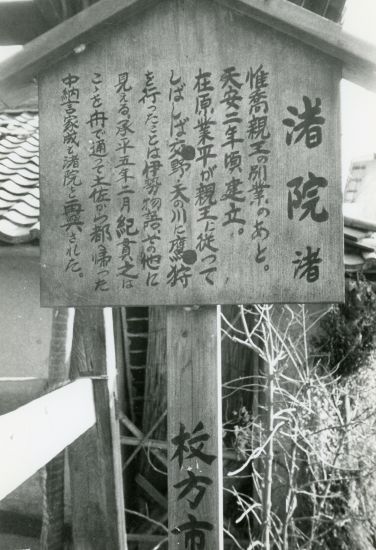 渚院 渚
惟喬親王の別業のあと。
天安二年頃建立。
在原業平が親王に従って
しばしば交野・天の川に鷹狩
を行ったことは伊勢物語その他に
見える。承平五年二月紀貫之は
こゝを舟で通って土佐から都へ帰った
中納言家成も渚院を再興された。
枚方市